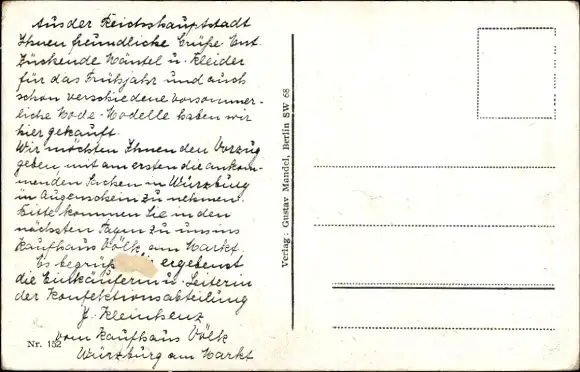 Aus der Reichshauptstadt
Ihnen freundliche Grüße. Ent
zückende Mäntel u. Kleider
für das Frühjahr und auch
schon verschiedene vorsommer-
liche Mode-Modelle haben wir
hier gekauft.
Wir möchten Ihnen den Vorzug
geben, mit am ersten die ankom-
menden Sachen in Würzburg
in Augenschein zu nehmen.
Bitte kommen Sie in den
nächsten Tagen zu uns ins
Kaufhaus Völk am Markt.
Es begrüß ergebenst
die Einkäuferin u. Leiterin
der Konfektionsabteilung
J. Kleinhenz
vom Kaufhaus Völk
Würzburg am Markt
Nr. 152
Verlag: Gustav Mandel, Berlin SW 68